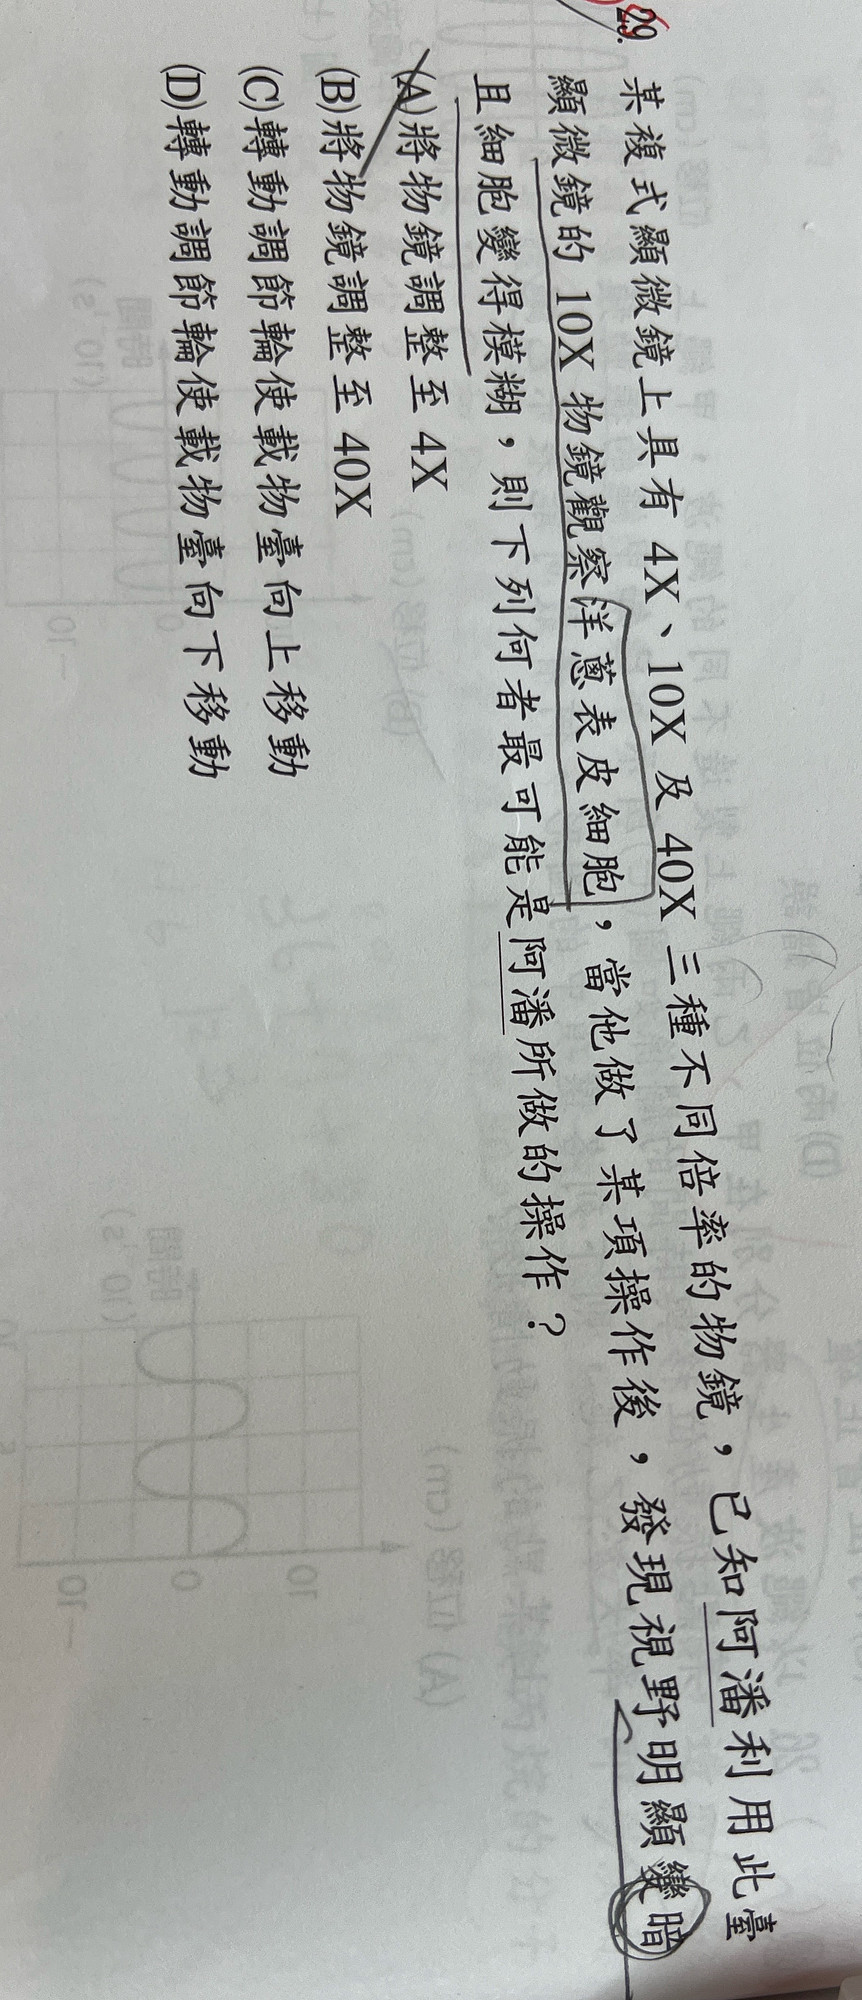 29. 某複式顯微鏡上具有 4X、10X 及 40X 三種不同倍率的物鏡，已知阿潘利用此臺
顯微鏡的 10X 物鏡觀察洋蔥表皮細胞，當他做了某項操作後，發現視野明顯變暗
且細胞變得模糊，則下列何者最可能是阿潘所做的操作？
(A)將物鏡調整至 4X
(B)將物鏡調整至 40X
(C)轉動調節輪使載物臺向上移動
(D)轉動調節輪使載物臺向下移動